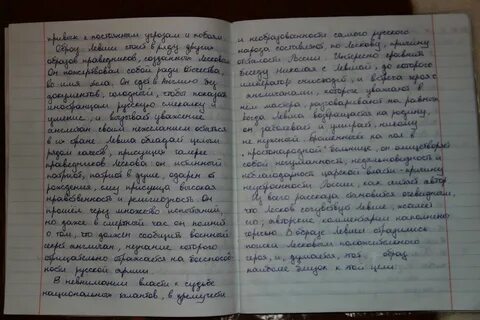 привык к постоянным угрозам и побоям.
Образ Левши стоит в ряду других
образов праведников, созданных Лесковым.
Он пожертвовал собой ради отечества,
во имя дела. Он едет в Англию без
документов, голодный, чтобы показать
иностранцам русскую смекалку и
умение, и вызывает уважение
англичан своим нежеланием остаться
в их стране. Левша обладает целым
рядом качеств, присущих галерее
праведников Лескова: он истинный
патриот, патриот в душе, одарен от
рождения, ему присуща высокая
нравственность и религиозность. Он
прошёл через множество испытаний,
но даже в смертный час он помнит
о том, что должен сообщить военный
секрет англичан, незнание которого
отрицательно отражается на боеспособ-
ности русской армии.
В невнимании власти к судьбе
национальных талантов, в дремучести
и необразованности самого русского
народа составляет, по Лескову, причину
отсталости России. Интересно сравнить
беседу Николая с Левшой, до которого
император снисходит, и встреча героя с
англичанами, которые уважают в
нем мастера, разговаривают на равных.
Когда Левша возвращается на родину,
он заболевает и умирает никому
не нужный. Брошенный на пол в
"простонародной" больнице, он олицетворяет
собой негуманность, недальновидность и
неблагодарность царской власти - причину
неустроенности России, как считает автор.
Из всего рассказа становится очевидным,
что Лесков сочувствует Левше, жалеет
его, авторские комментарии наполнены
горечью. В образе Левши отразились
поиски Лесковым положительного
героя, и, думается, этот образ
наиболее близок к этой цели.